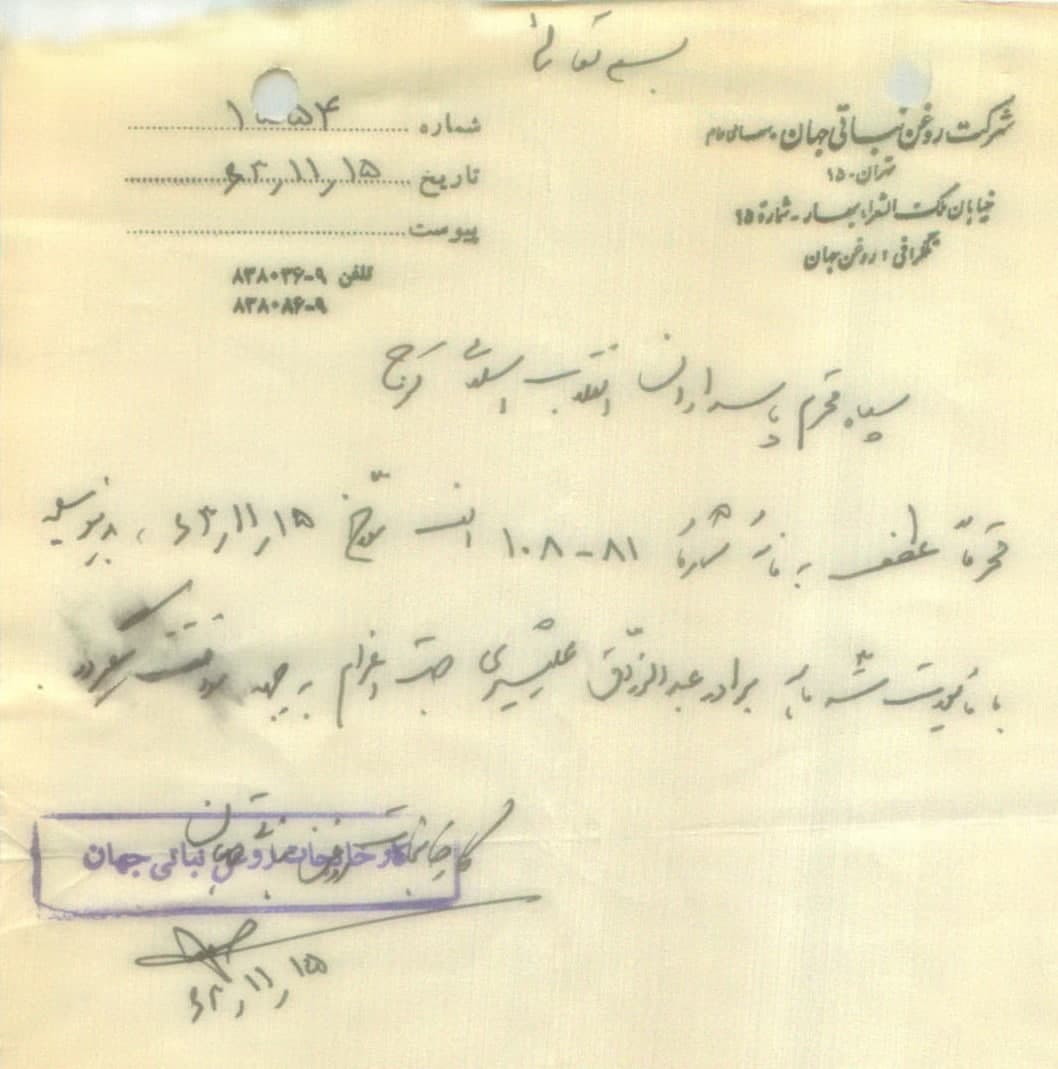 بسمه تعالی
شرکت روغن نباتی جهان - سهامی عام
تهران - ۱۵
خیابان ملک الشعراء بهار - شمارهٔ ۱۵
تلگرافی : روغن جهان
شماره
تاریخ ۶۳٫۱۱٫۱۵
پیوست
تلفن ۹-۸۳۸۰۳۶
۹-۸۳۸۰۸۶
سپاه محترم پاسداران انقلاب اسلامی کرج
محترماً عطف به نامه شماره ۸۱-۱۰۸ الف مورخ ۶۳٫۱۱٫۱۵ ، بدینوسیله
با مأموریت سه ماهه برادر عبدالرزاق علیشیری جهت اعزام به جبهه موافقت میگردد .
کارخانجات روغن نباتی جهان
کارخانجات روغن نباتی جهان
۶۳٫۱۱٫۱۵